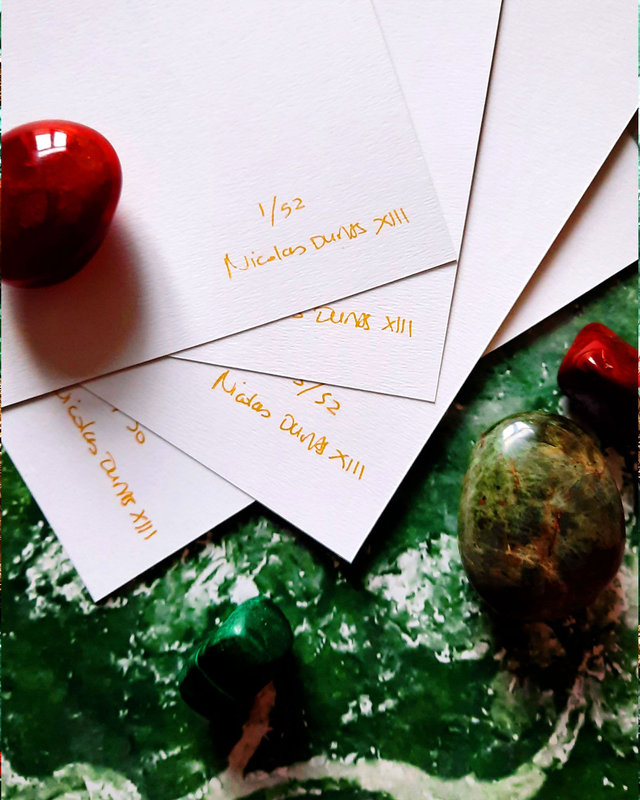 1/52
Nicolas Dunas XIII
Dunas XIII
/52
Nicolas Dunas XIII
Nicolas Dunas XIII